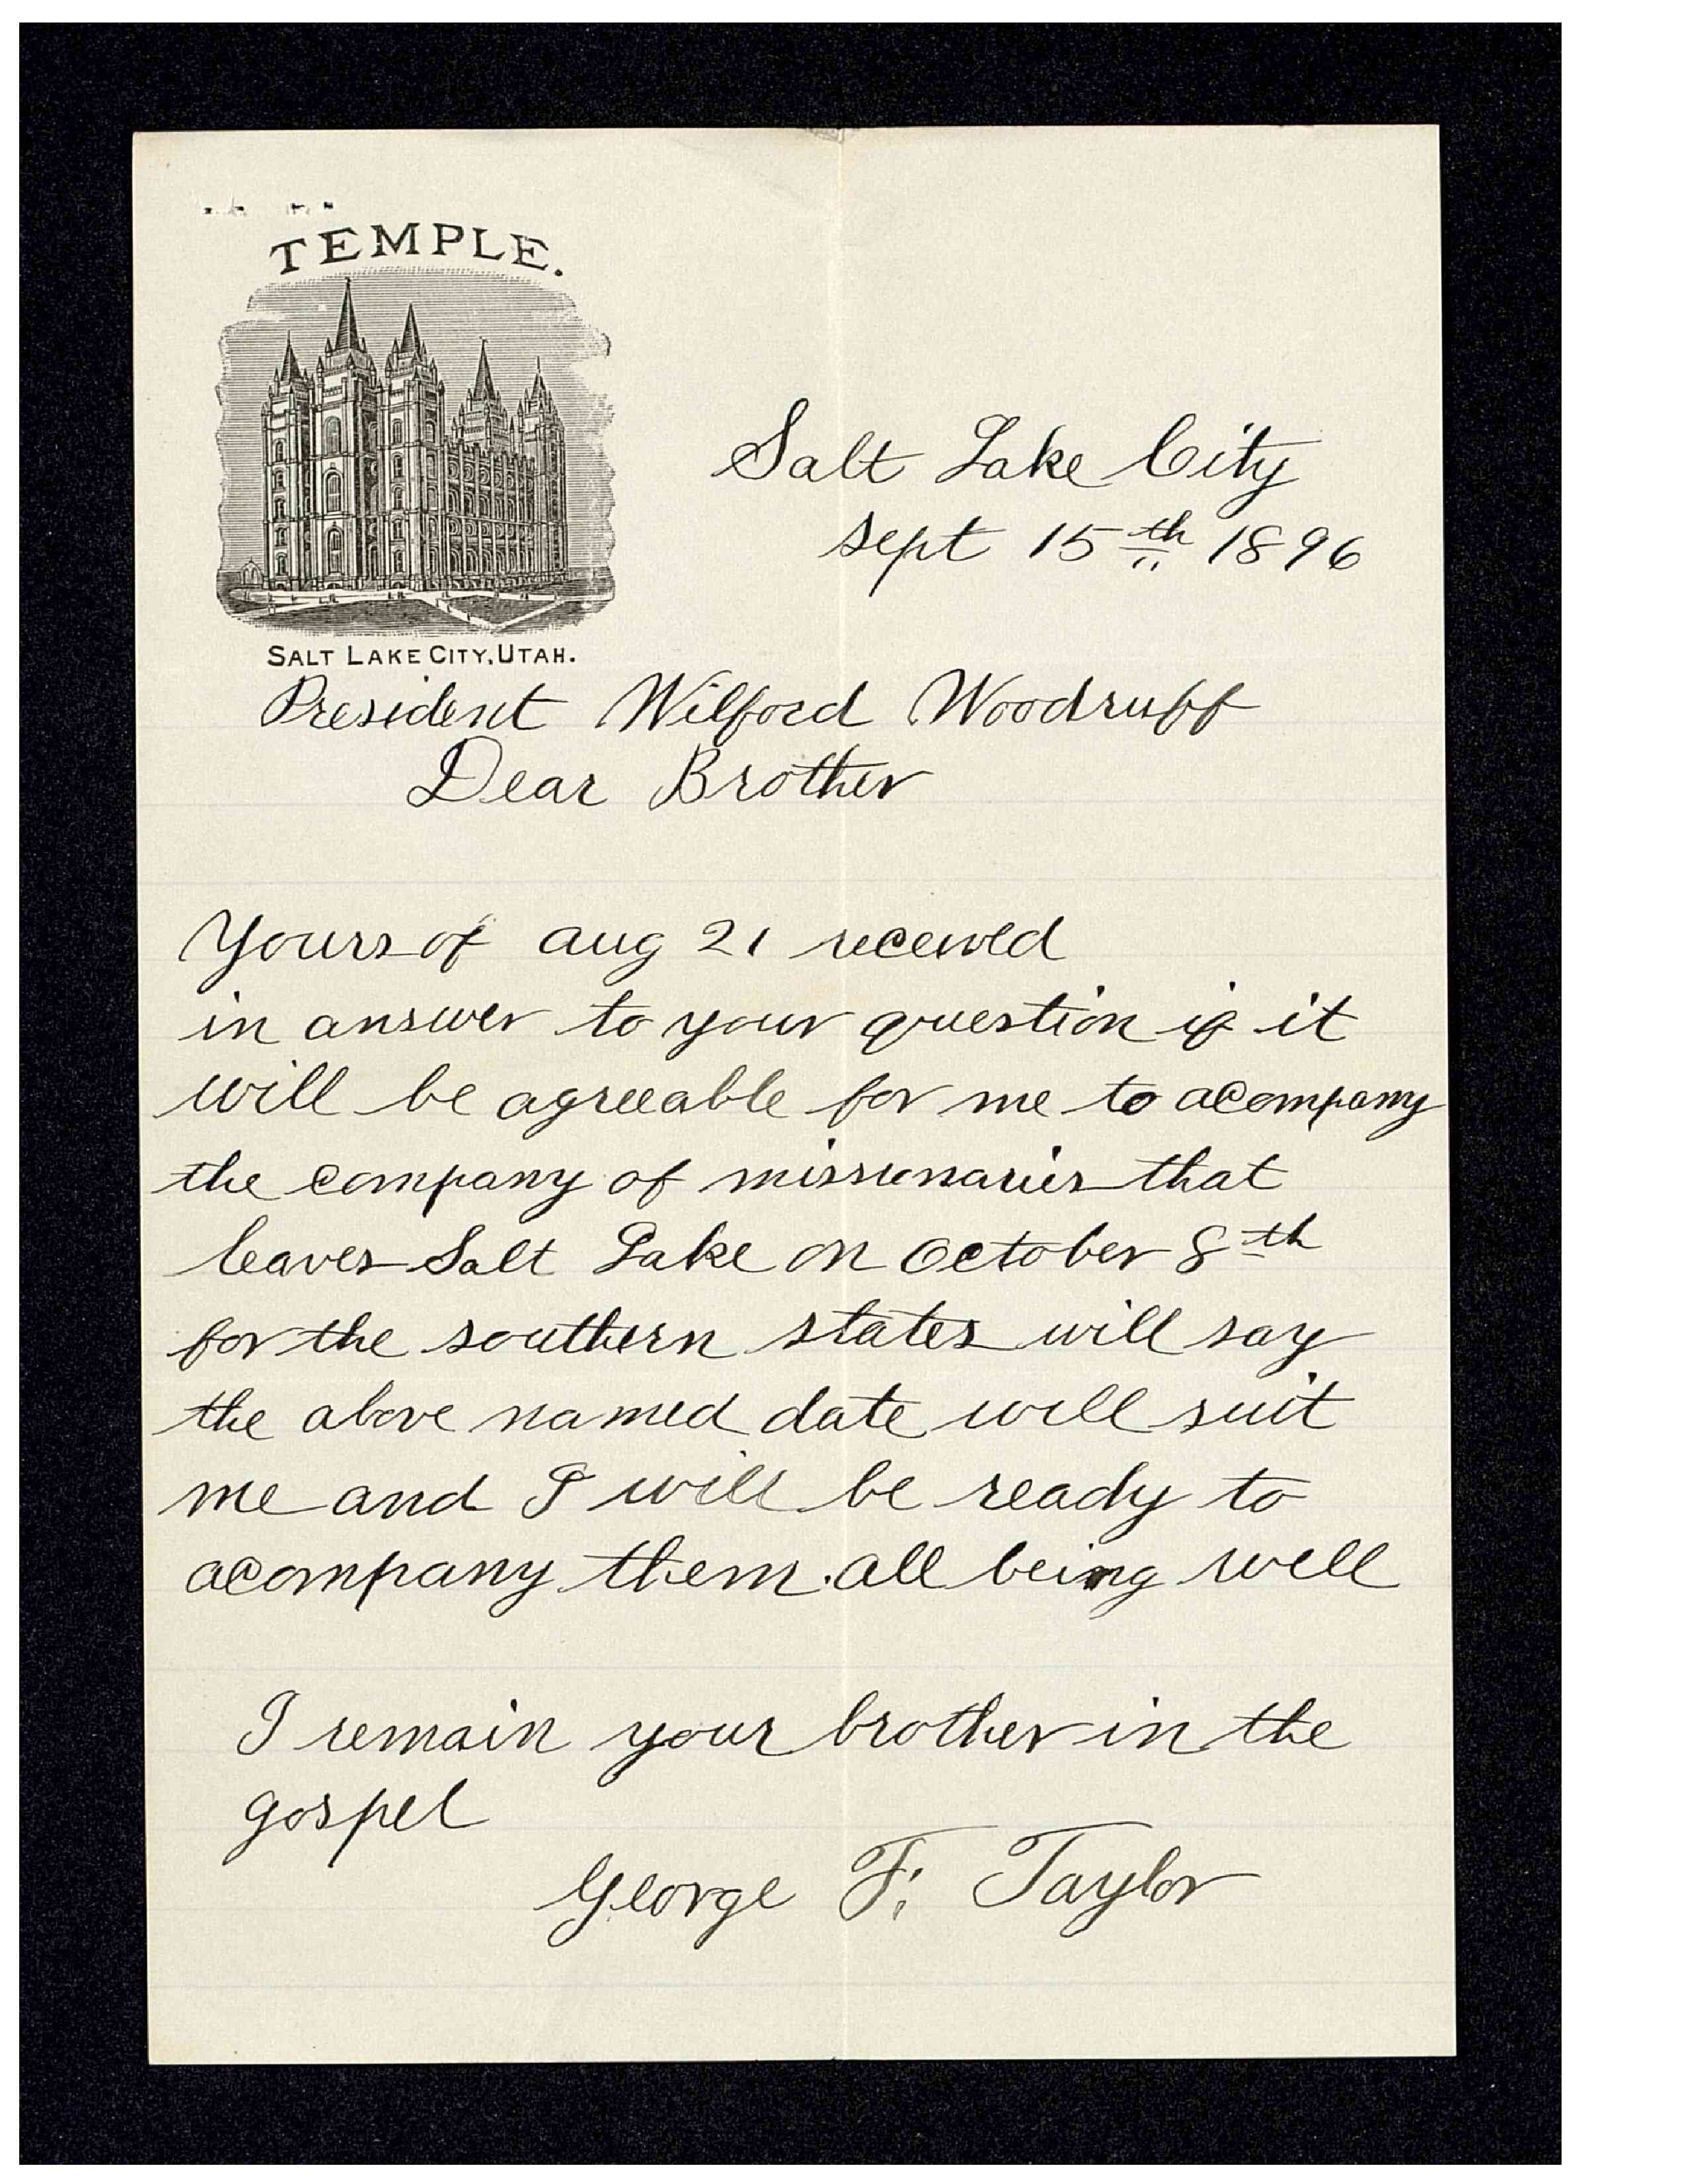 TEMPLE.
SALT LAKE CITY, UTAH.
Salt Lake City
sept 15th 1896
President Wilford Woodruff
Dear Brother
Yours of aug 21 received
in answer to your question if it
will be agreeable for me to acompany
the company of missionaries that
leaves Salt Lake on October 8th
for the southern states will say
the above named date will suit
me and I will be ready to
acompany them. all being well
I remain your brother in the
gospel
George F. Taylor